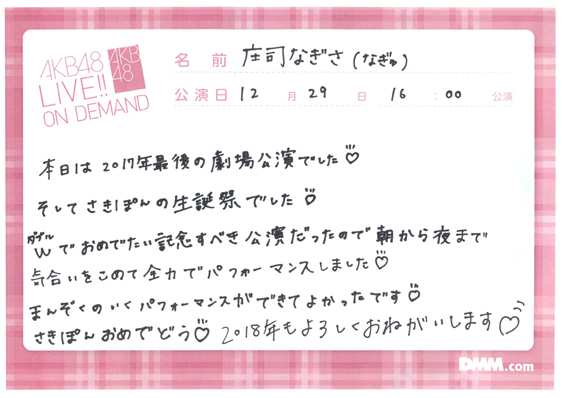 AKB48
LIVE!!
ON DEMAND
AKB
48
名前 庄司なぎさ(なぎゅ)
公演日 12月29日 16:00公演
本日は2017年最後の劇場公演でした♡
そしてさきぽんの生誕祭でした♡
ダブル
Wでおめでたい記念すべき公演だったので朝から夜まで
気合いをこめて全力でパフォーマンスしました♡
まんぞくのいくパフォーマンスができてよかったです♡
さきぽんおめでどう♡ 2018年もよろしくおねがいします♡
DMM.com